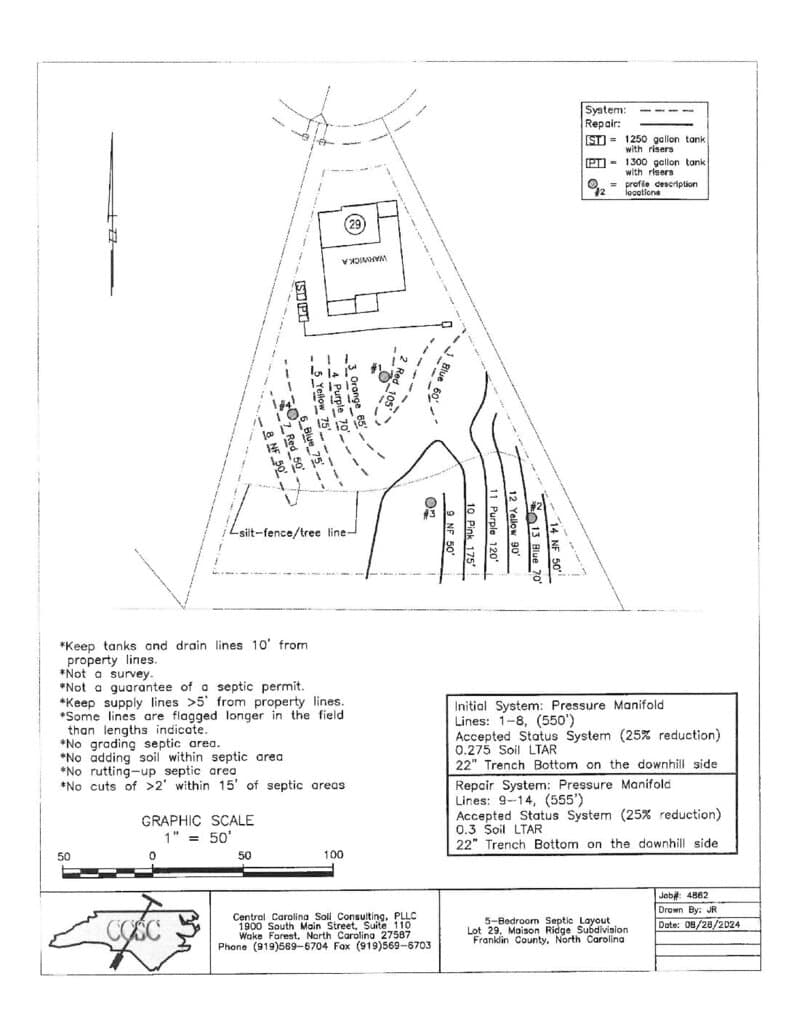 System:
Repair:
ST = 1250 gallon tank
with risers
PT = 1300 gallon tank
with risers
#2 = profile description
locations
N
29
WARWICK A
ST
PT
1 Blue 60'
2 Red 105'
#1
3 Orange 85'
4 Purple 70'
5 Yellow 75'
#4
6 Blue 75'
7 Red 50'
8 NF 50'
silt-fence/tree line
#3
9 NF 50'
10 Pink 175'
11 Purple 120'
12 Yellow 90'
#2
13 Blue 70'
14 NF 50'
*Keep tanks and drain lines 10' from
property lines.
*Not a survey.
*Not a guarantee of a septic permit.
*Keep supply lines >5' from property lines.
*Some lines are flagged longer in the field
than lengths indicate.
*No grading septic area.
*No adding soil within septic area
*No rutting-up septic area
*No cuts of >2' within 15' of septic areas
GRAPHIC SCALE
1" = 50'
50 0 50 100
Initial System: Pressure Manifold
Lines: 1-8, (550')
Accepted Status System (25% reduction)
0.275 Soil LTAR
22" Trench Bottom on the downhill side
Repair System: Pressure Manifold
Lines: 9-14, (555')
Accepted Status System (25% reduction)
0.3 Soil LTAR
22" Trench Bottom on the downhill side
CCSC
Central Carolina Soil Consulting, PLLC
1900 South Main Street, Suite 110
Wake Forest, North Carolina 27587
Phone (919)569-6704 Fax (919)569-6703
5-Bedroom Septic Layout
Lot 29, Maison Ridge Subdivision
Franklin County, North Carolina
Job#: 4862
Drawn By: JR
Date: 08/28/2024